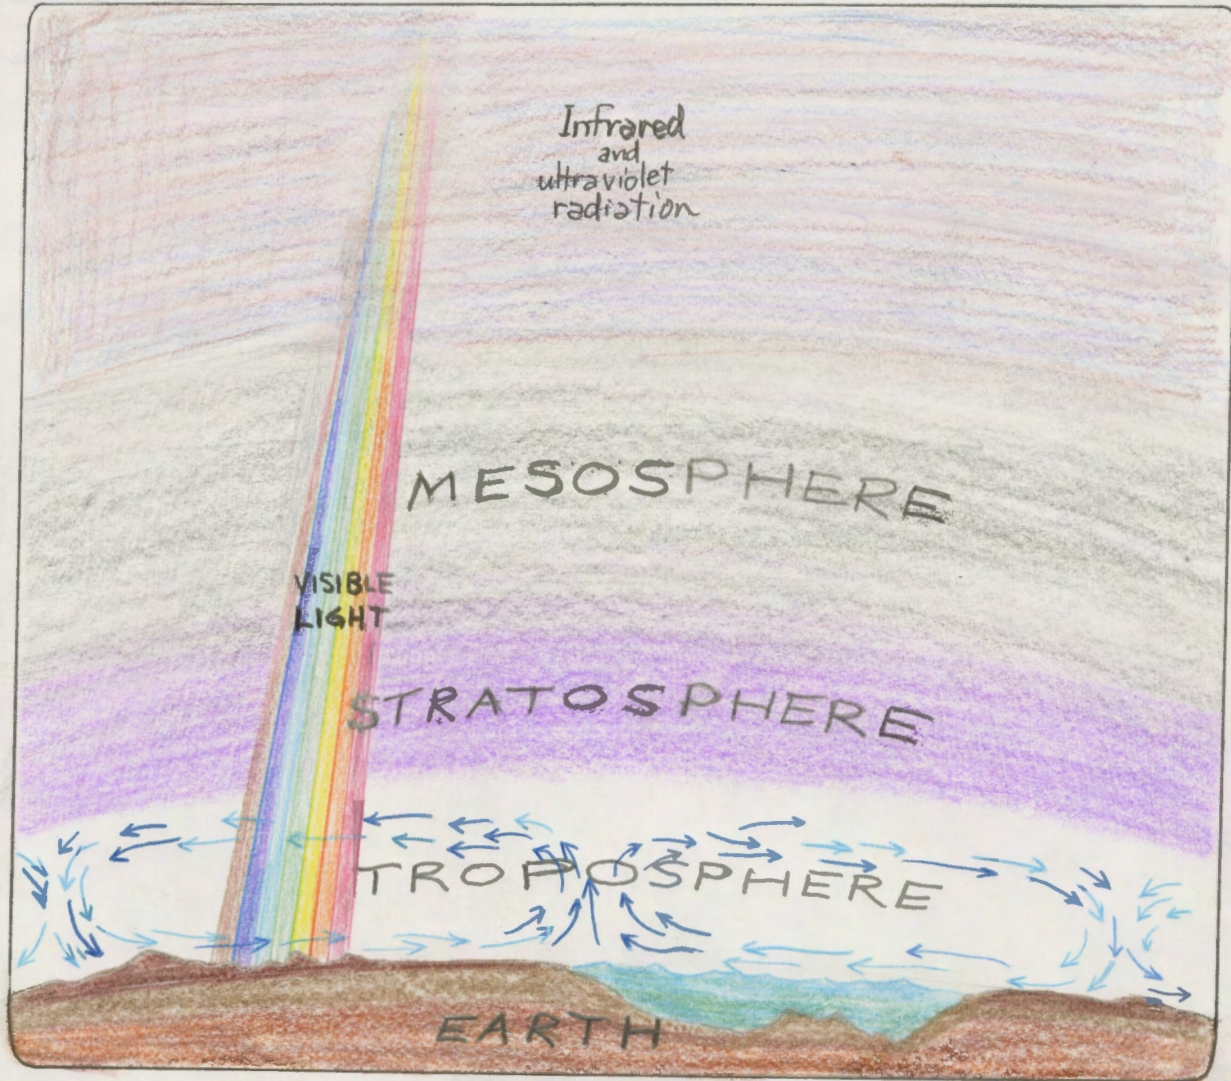 Infrared
and
ultraviolet
radiation
MESOSPHERE
VISIBLE
LIGHT
STRATOSPHERE
TROPOSPHERE
EARTH